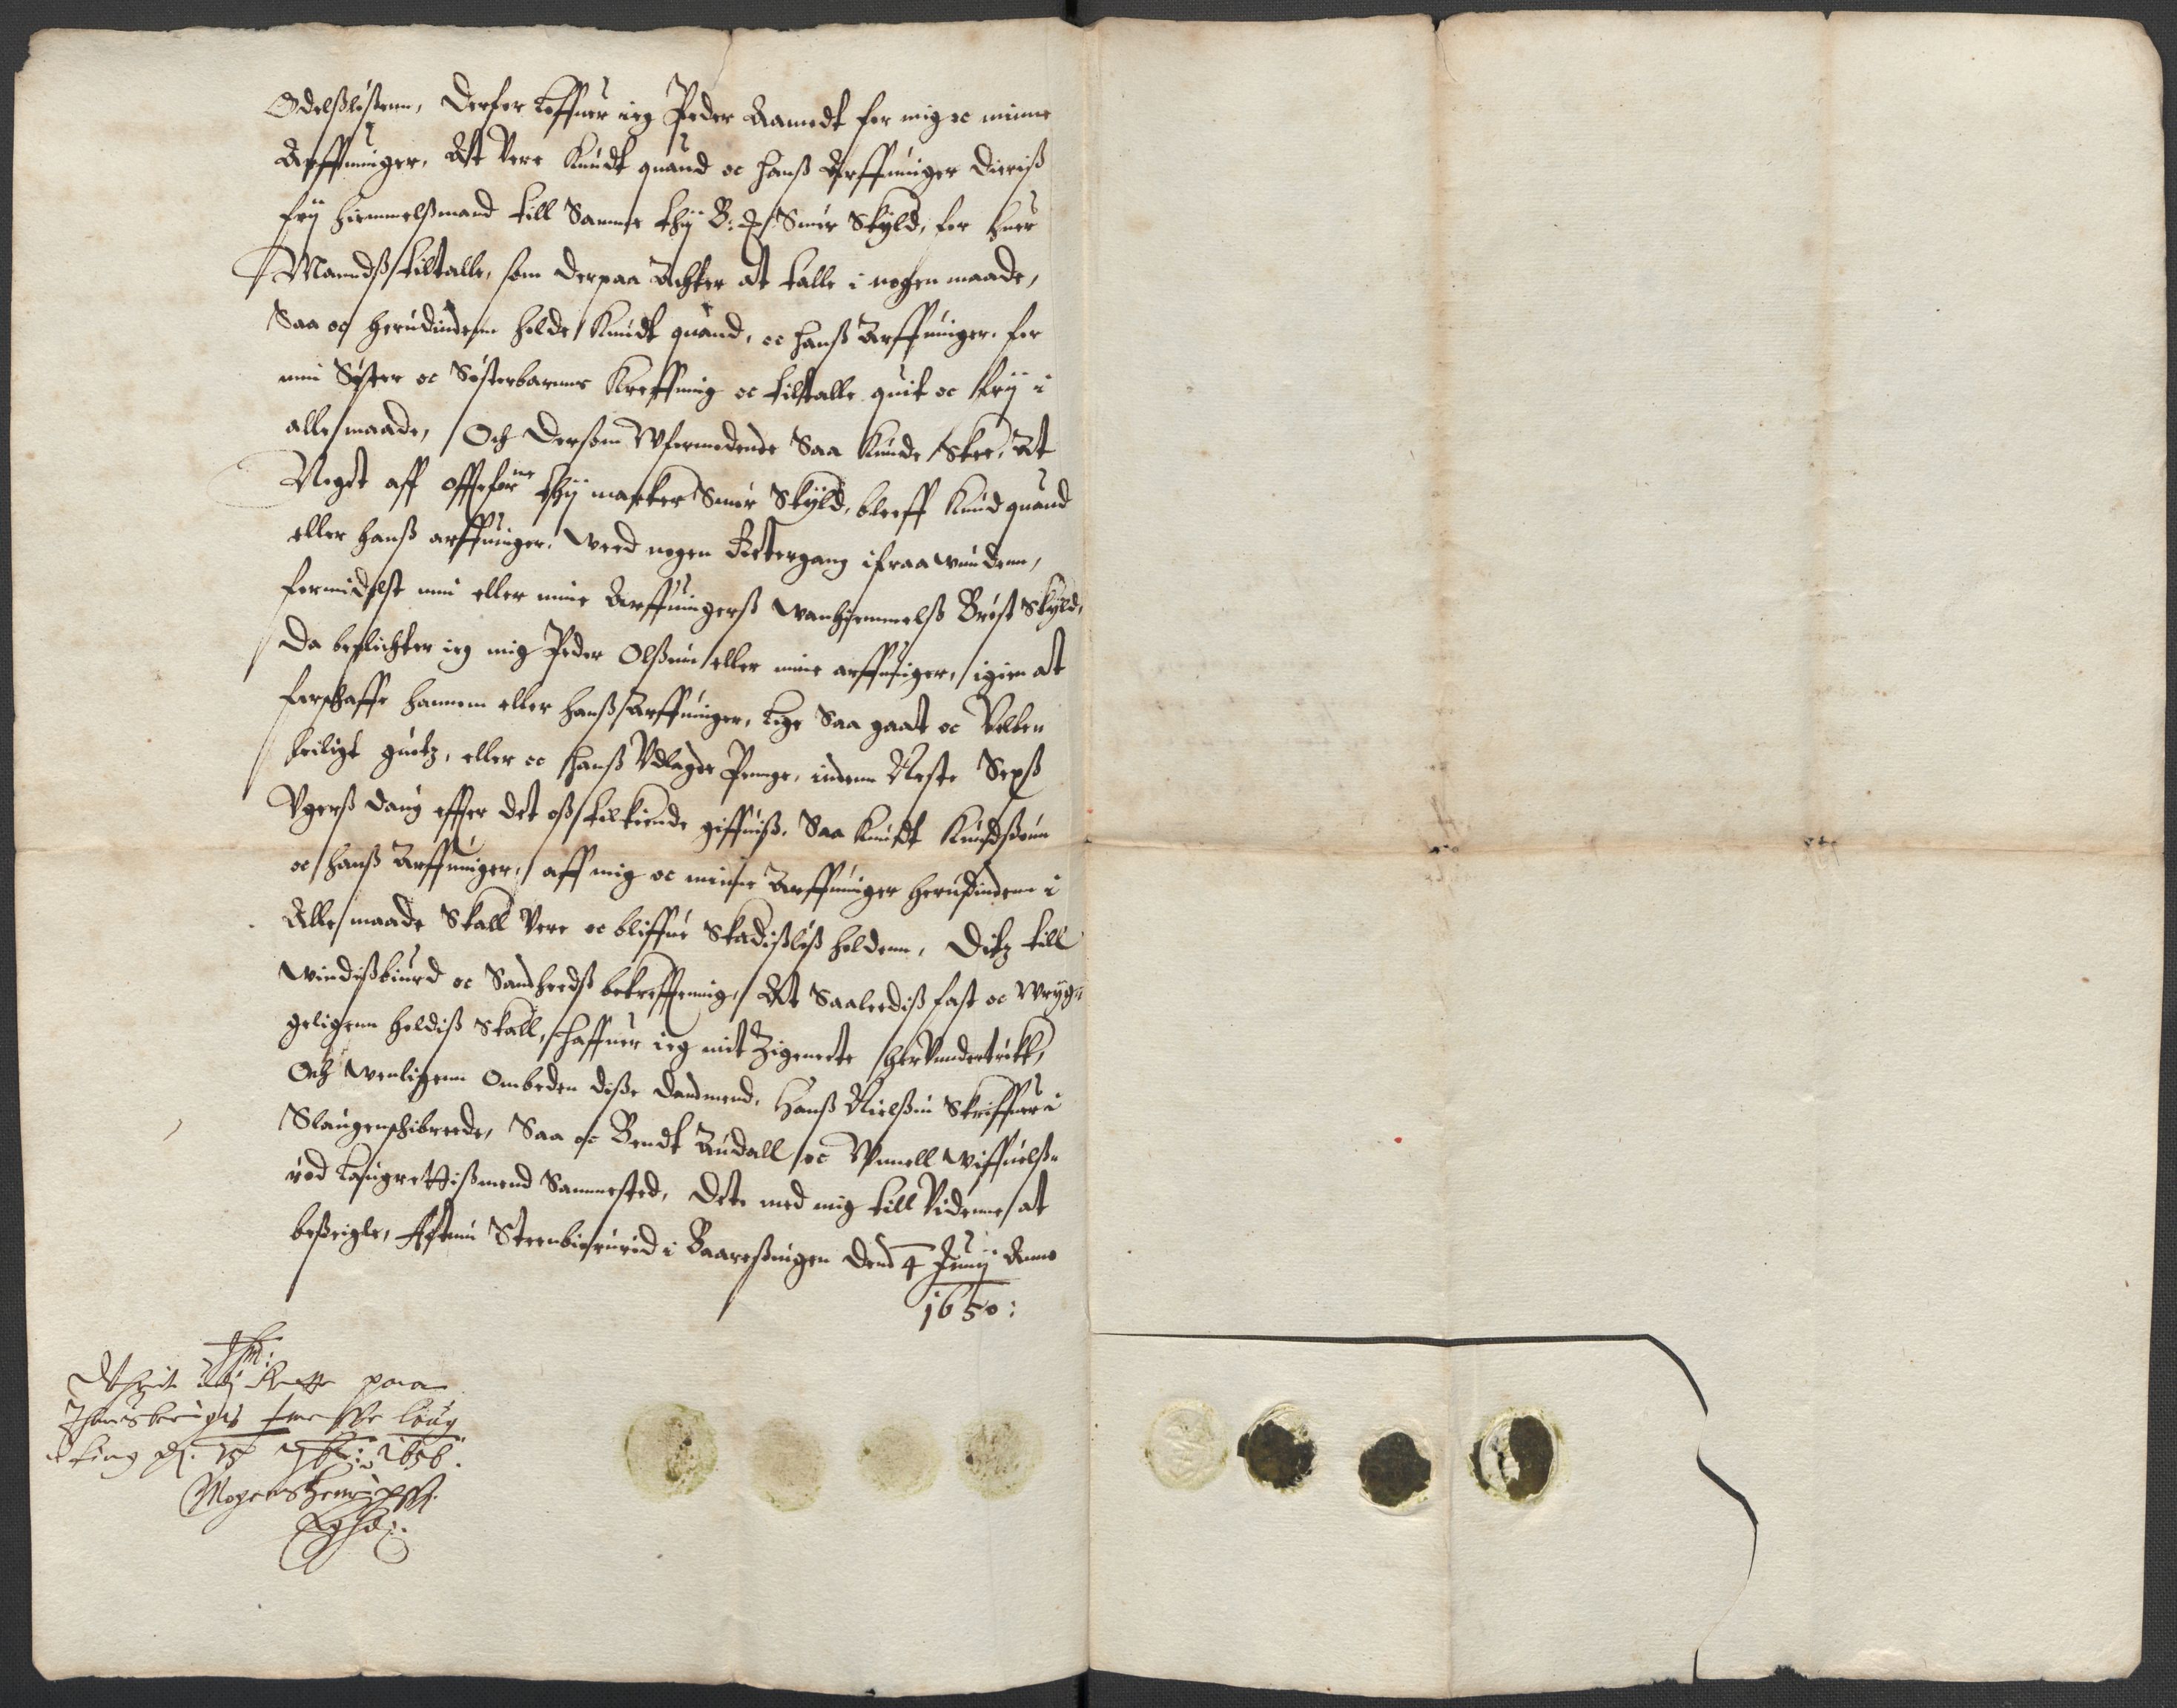 Odelsløßenn, Derfor loffuer ieg Peder Aamodt for mig oc minne
Arffuinger, Att Vere Knudt quand oc hanß Arffuinger Dieriß
frij hiemmelßmand till Samme thij B: Smør Skyld, for huer
Mandß tiltalle, som derpaa Achter at talle i nogen maade,
Saa oc herudindenn holde Knudt quand, oc hanß Arffuinger, for
min Søster oc Søsterbarns Kreffning oc tiltalle quit oc frij i
alle maade, Och Dersom Wformodende Saa kunde Skee, At
Nogit aff offuerne thij marker Smør Skyld, bleeff Knud quand
eller hanß arffuinger, weed nogen Rettergang ifraa wundenn,
formidelst min eller mine Arffuingerß wanhiemmelß Brøst Skyld,
Da beplichter ieg mig Peder Olßenn eller mine arffuinger, igien at
forschaffe hannem eller hanß Arffuinger, lige Saa gaat oc Velbe
leiligt guotz, eller oc hanß Vdlagde Penge, indenn Neste Sexß
Vgerß daug effter det oß tilkiende giffuiß, Saa Knudt Knudßønn
oc hanß Arffuinger, aff mig oc minne Arffuinger herudindenn i
Alle maade Skall Vere oc bliffue Skadißløß holdenn, Ditz till
windißbiurd oc Sandheedß bekrefftning, At Saaleediß fast oc Wryg=
geligenn holdiß Skall, haffuer ieg mit Zignette her Vndertrøkt,
Och wenligenn Ombeden diße dandmend, Hanß Nielßøn Skriffuer i
Slaugenschibreede, Saa oc Bendt Audall oc Gunell wiffuelß=
rød laugrettißmend Sammested, Dete med mig till Videnne at
beßeigle, Actum Steenbierurød i Baareßingen Dend 4 Junij Anno
1650:
Thm:
Lest udj Rette paa
Thunsbergs laug
ting d. 15 7br: 1656.
Mogens